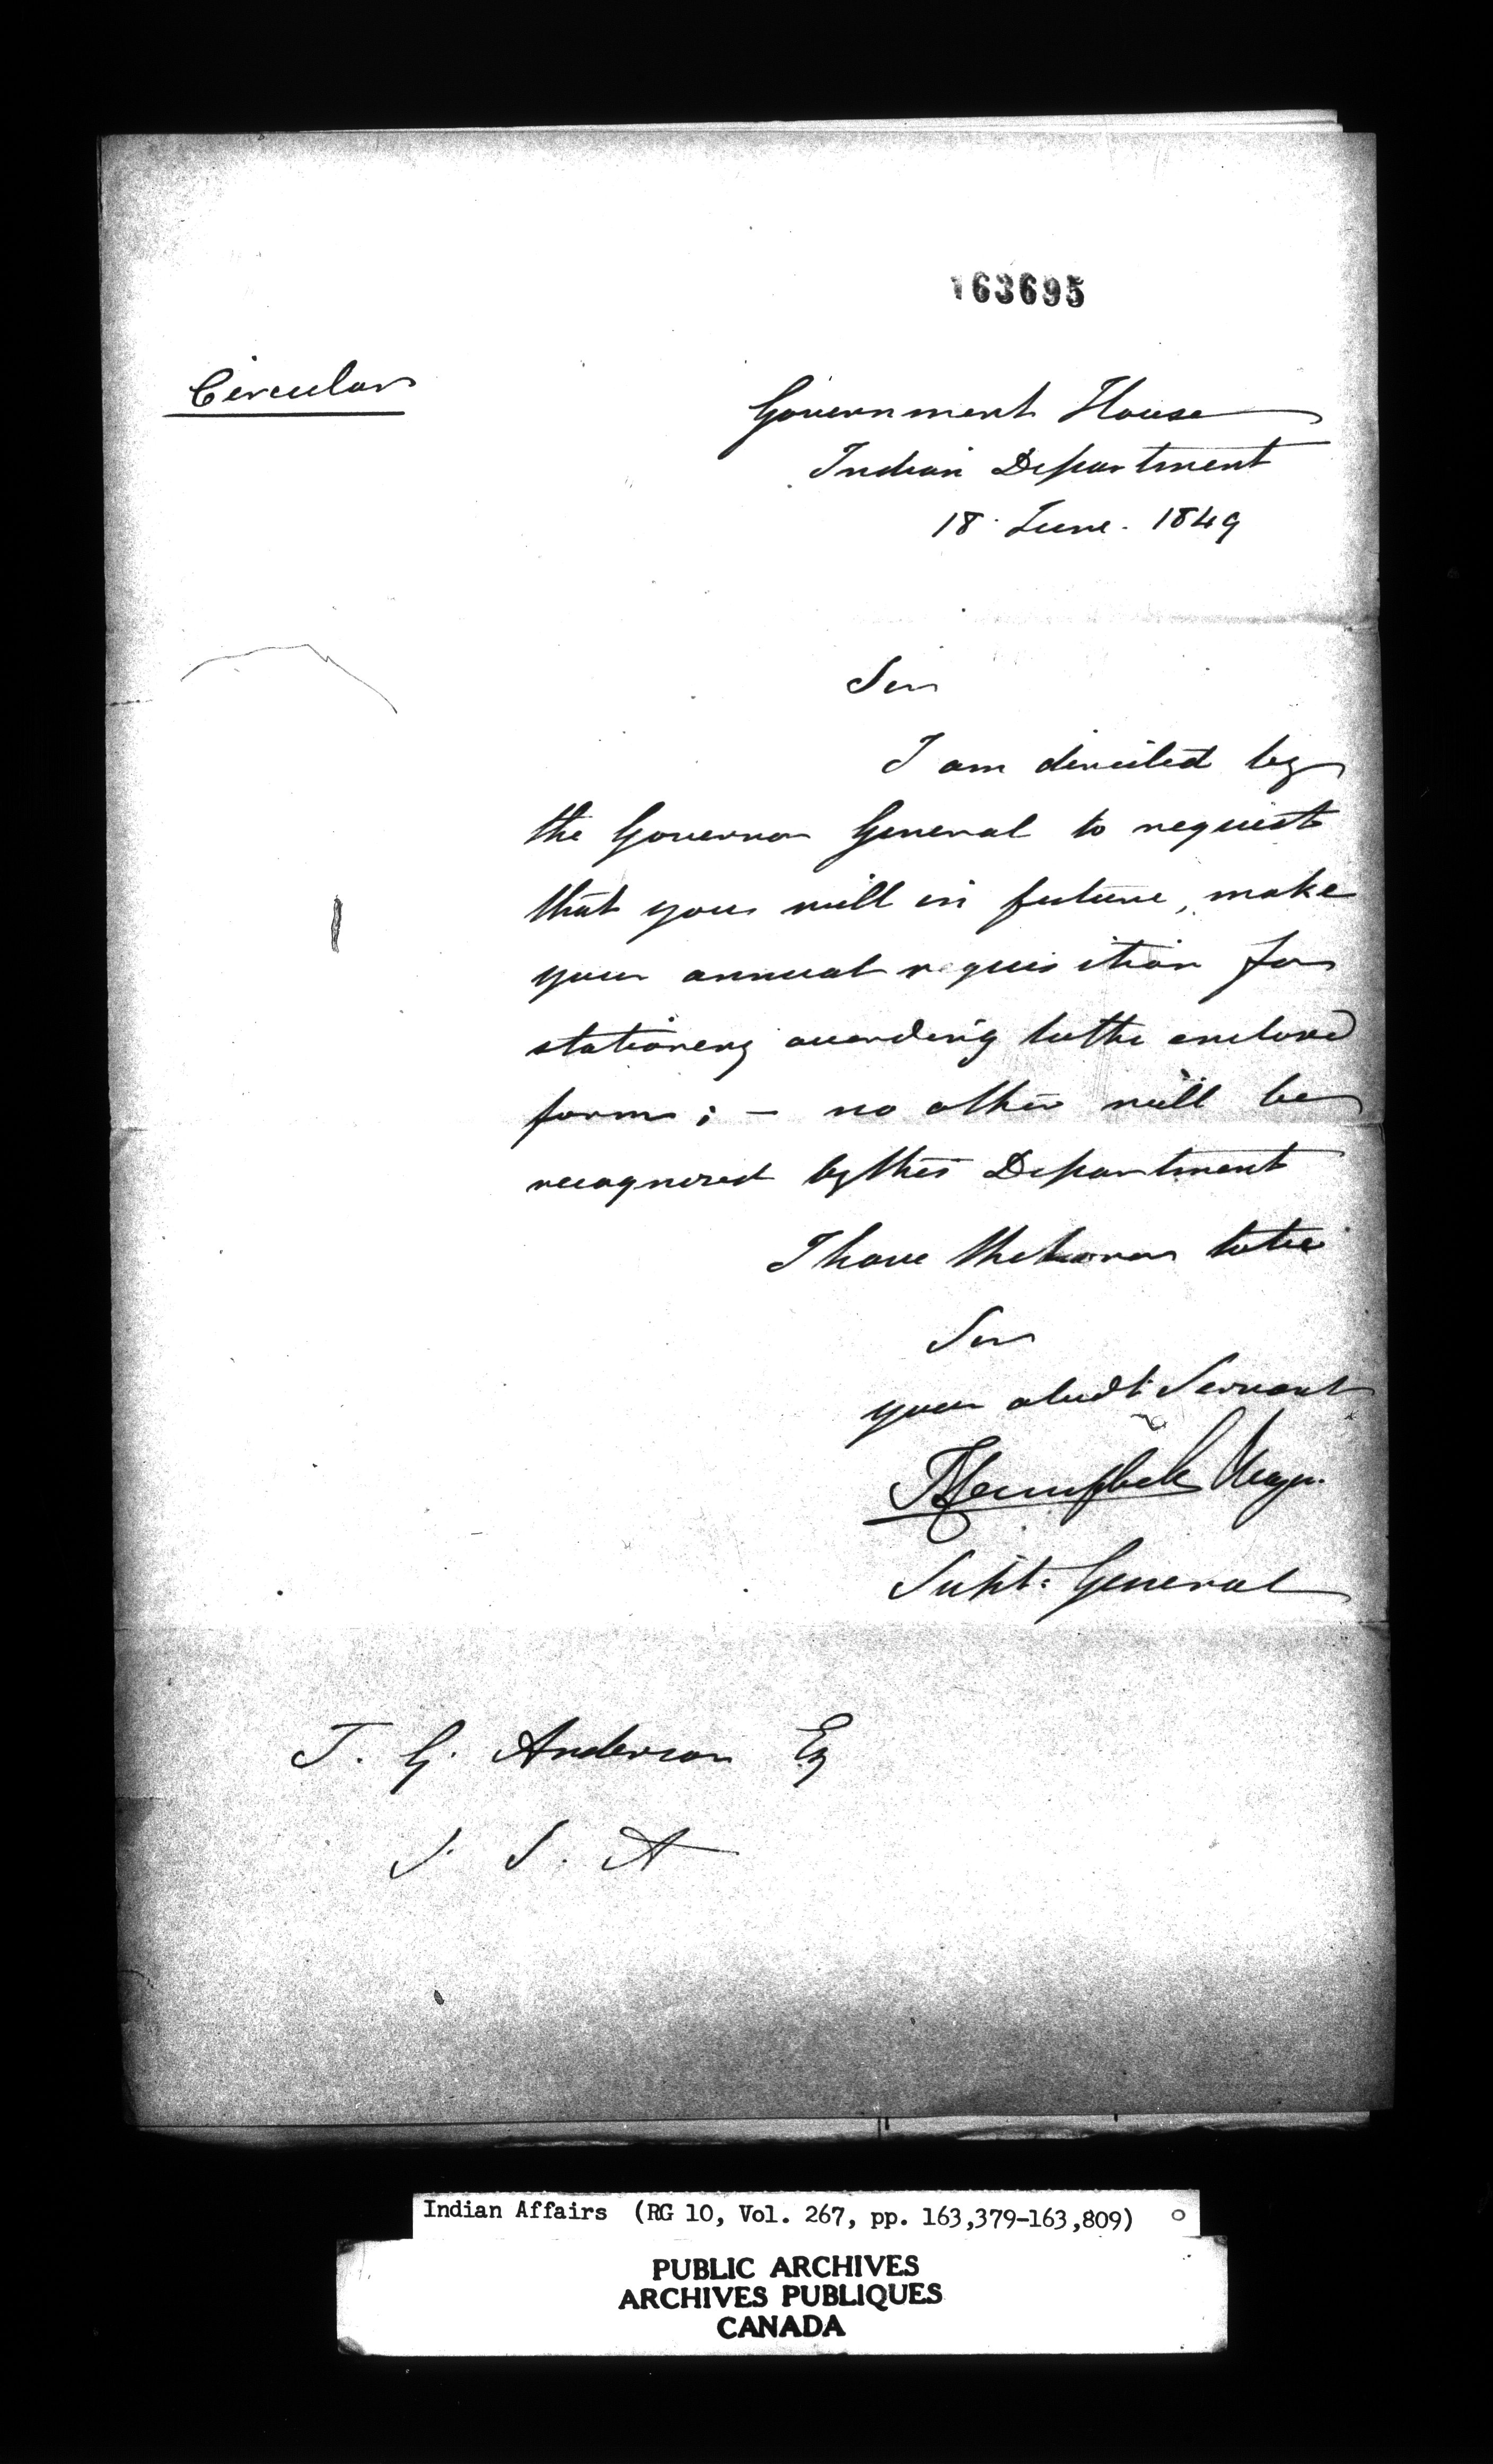 163695
Circular
Government House
Indian Department
18 June. 1849
Sir
I am directed by
the Governor General to request
that you will in future, make
your annual requisition for
stationery according to the enclosed
form; — no other will be
recognized by this Department
I have the honor to be
Sir
your obedt Servant
T Campbell Major
Supt: General
T. G. Anderson Esq
V. S. A
Indian Affairs (RG 10, Vol. 267, pp. 163,379-163,809)
PUBLIC ARCHIVES
ARCHIVES PUBLIQUES
CANADA